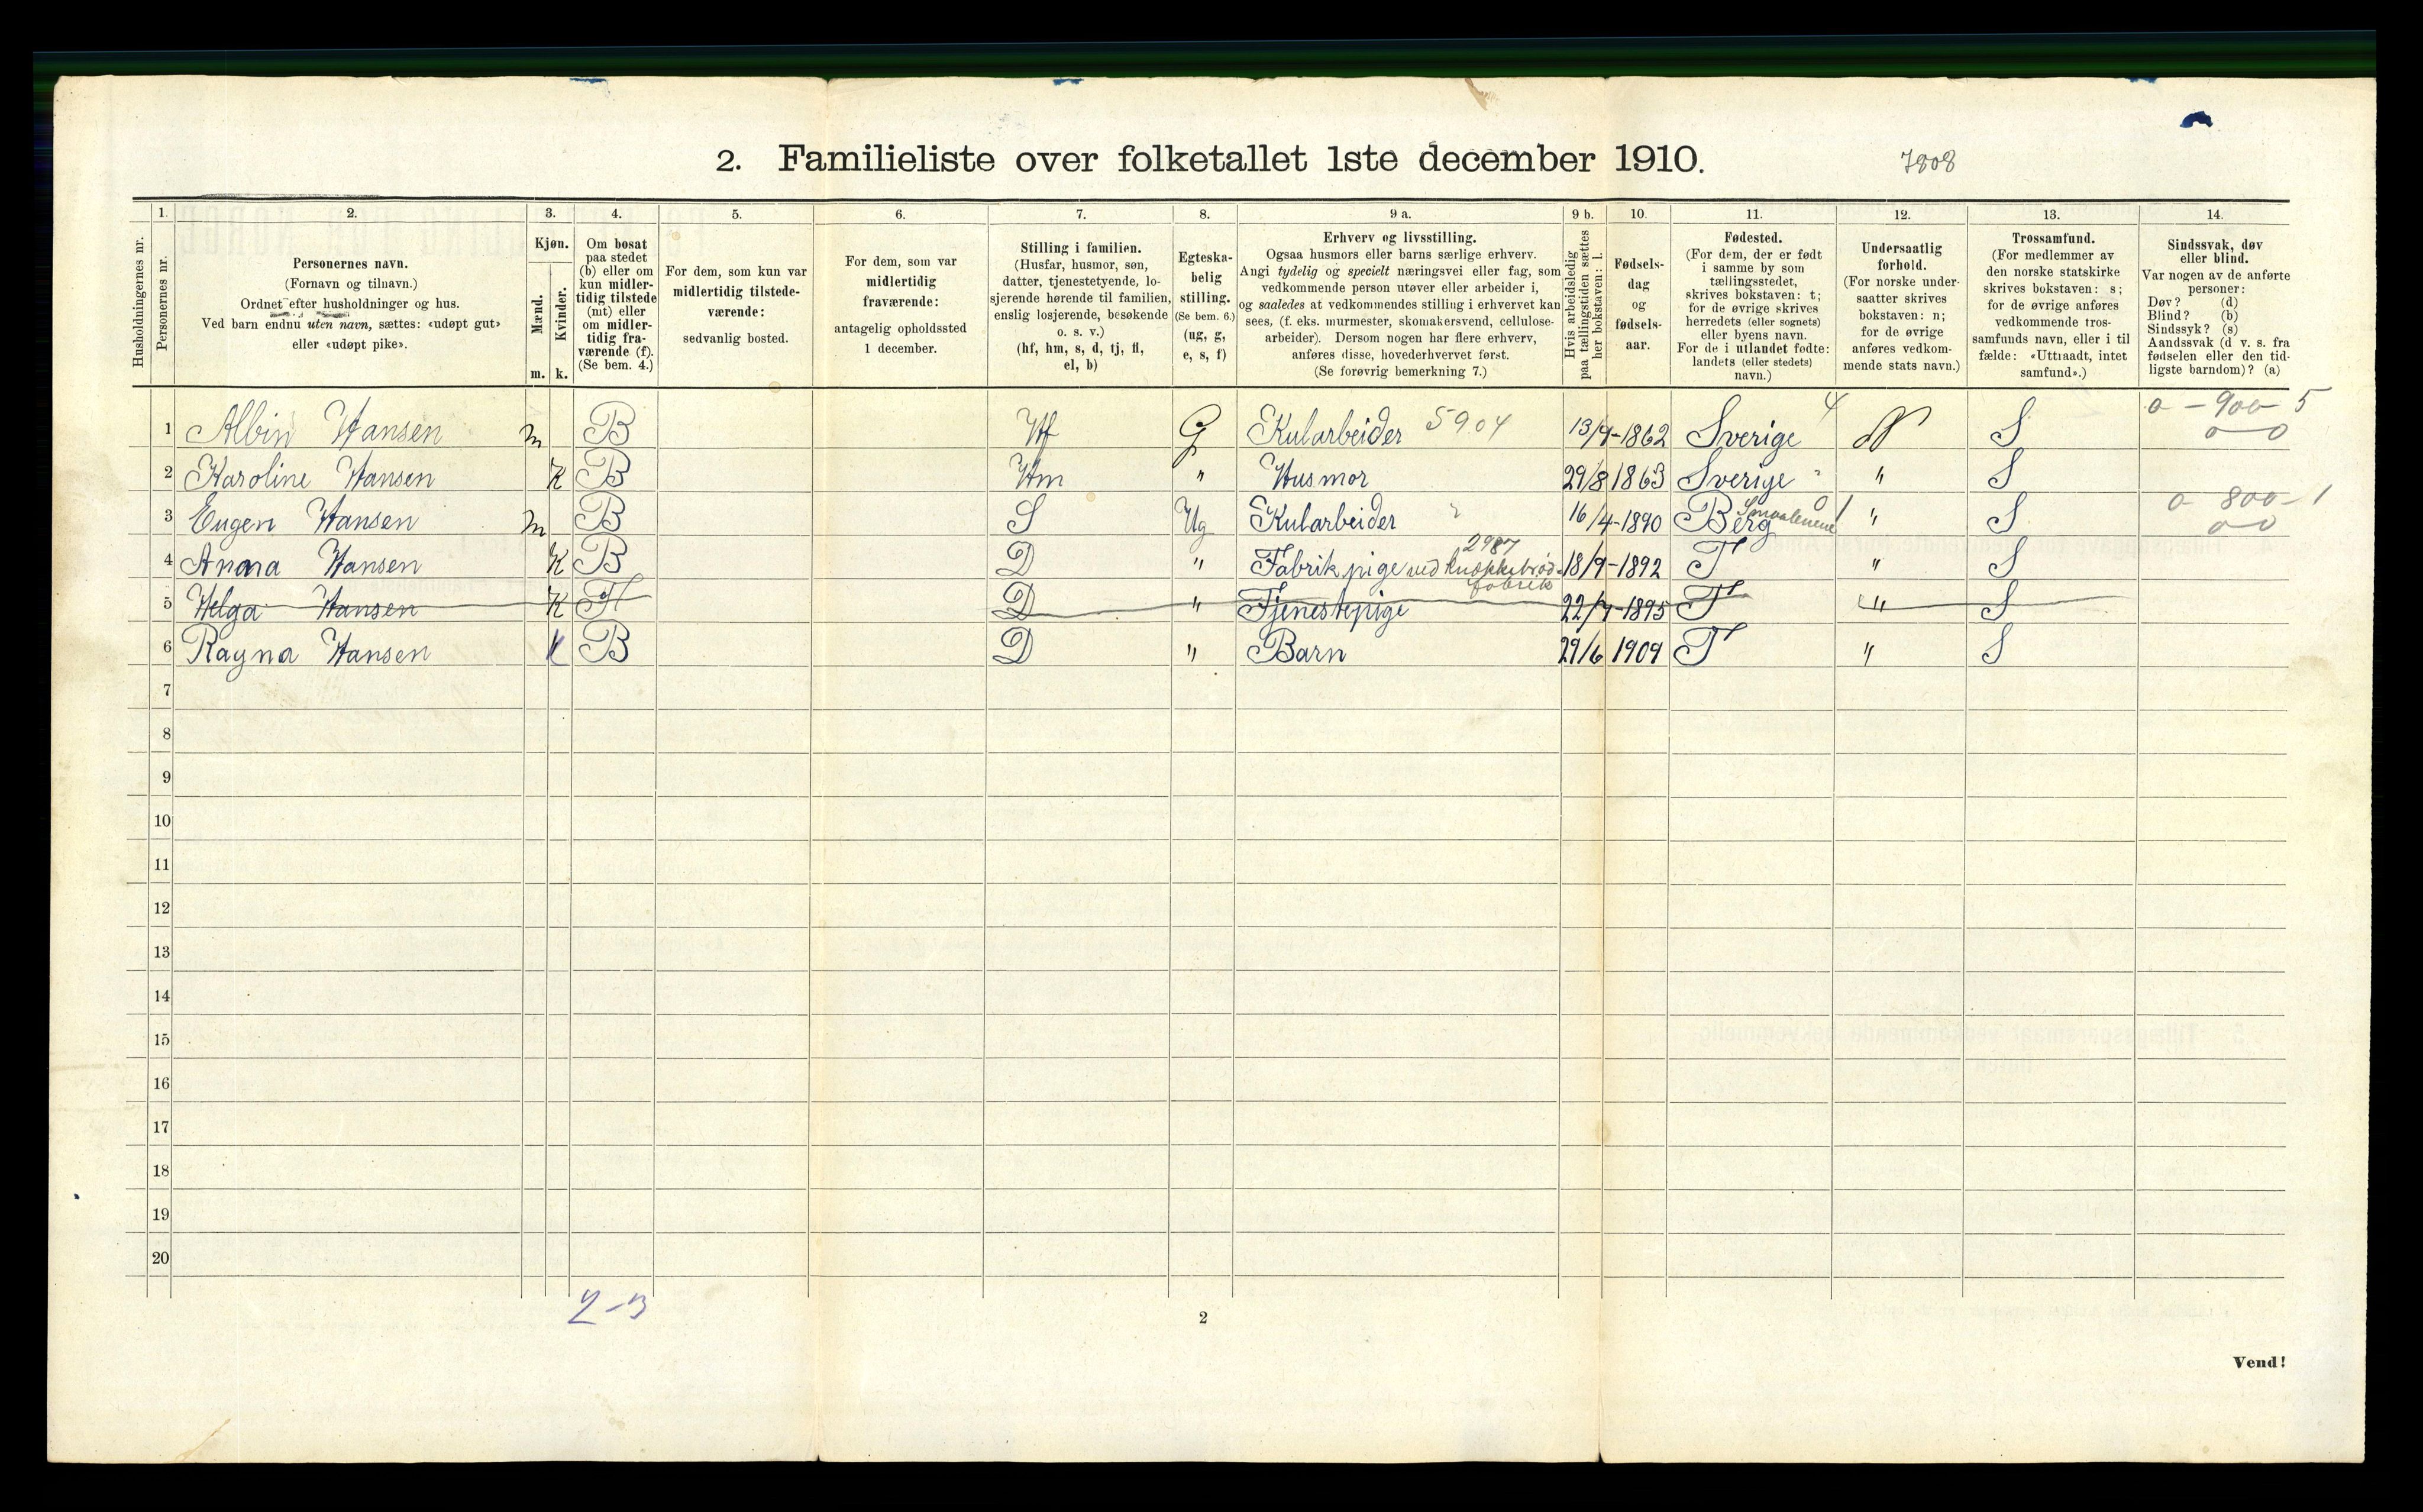 2. Familieliste over folketallet 1ste december 1910. 7808
1. 2. 3. 4. 5. 6. 7. 8. 9 a. 9 b. 10. 11. 12. 13. 14.
Husholdningernes nr.
Personernes nr.
Personernes navn.
(Fornavn og tilnavn.)
Ordnet efter husholdninger og hus.
Ved barn endnu uten navn, sættes: «udøpt gut»
eller «udøpt pike».
Kjøn.
Mænd.
Kvinder.
m. k.
Om bosat
paa stedet
(b) eller om
kun midler-
tidig tilstede
(mt) eller
om midler-
tidig fra-
værende (f).
(Se bem. 4.)
For dem, som kun var
midlertidig tilstede-
værende:
sedvanlig bosted.
For dem, som var
midlertidig
fraværende:
antagelig opholdssted
1 december.
Stilling i familien.
(Husfar, husmor, søn,
datter, tjenestetyende, lo-
sjerende hørende til familien,
enslig losjerende, besøkende
o. s. v.)
(hf, hm, s, d, tj, fl,
el, b)
Egteska-
belig
stilling.
(Se bem. 6.)
(ug, g,
e, s, f)
Erhverv og livsstilling.
Ogsaa husmors eller barns særlige erhverv.
Angi tydelig og specielt næringsvei eller fag, som
vedkommende person utøver eller arbeider i,
og saaledes at vedkommendes stilling i erhvervet kan
sees, (f. eks. murmester, skomakersvend, cellulose-
arbeider). Dersom nogen har flere erhverv,
anføres disse, hovederhvervet først.
(Se forøvrig bemerkning 7.)
Hvis arbeidsledig
paa tællingstiden sættes
her bokstaven: l.
Fødsels-
dag
og
fødsels-
aar.
Fødested.
(For dem, der er født
i samme by som
tællingsstedet,
skrives bokstaven: t;
for de øvrige skrives
herredets (eller sognets)
eller byens navn.
For de i utlandet fødte:
landets (eller stedets)
navn.)
Undersaatlig
forhold.
(For norske under-
saatter skrives
bokstaven: n;
for de øvrige
anføres vedkom-
mende stats navn.)
Trossamfund.
(For medlemmer av
den norske statskirke
skrives bokstaven: s;
for de øvrige anføres
vedkommende tros-
samfunds navn, eller i til
fælde: «Uttraadt, intet
samfund».)
Sindssvak, døv
eller blind.
Var nogen av de anførte
personer:
Døv? (d)
Blind? (b)
Sindssyk? (s)
Aandssvak (d v. s. fra
fødselen eller den tid-
ligste barndom)? (a)
4 0 - 900 - 5
1 Albin Hansen m B Hf G Kularbeider 5904 13/9-1862 Sverige N S 0 - 0
2 Karoline Hansen K B Hm " Husmor 29/8 1863 Sverige " S
0 800 - 1
3 Eugen Hansen m B S Ug Kularbeider " 16/4-1890 Berg Smaalenene " S 0 0
2987
4 Anna Hansen K B D " Fabrikpige ved knækkebrød- 18/9-1892 T " S
fabrik
5 Helga Hansen K F D " Tjenestepige 22/7-1895 T " S
6 Ragna Hansen K B D " Barn 29/6 1909 T " S
7
8
9
10
11
12
13
14
15
16
17
18
19
20
2-3
2
Vend!